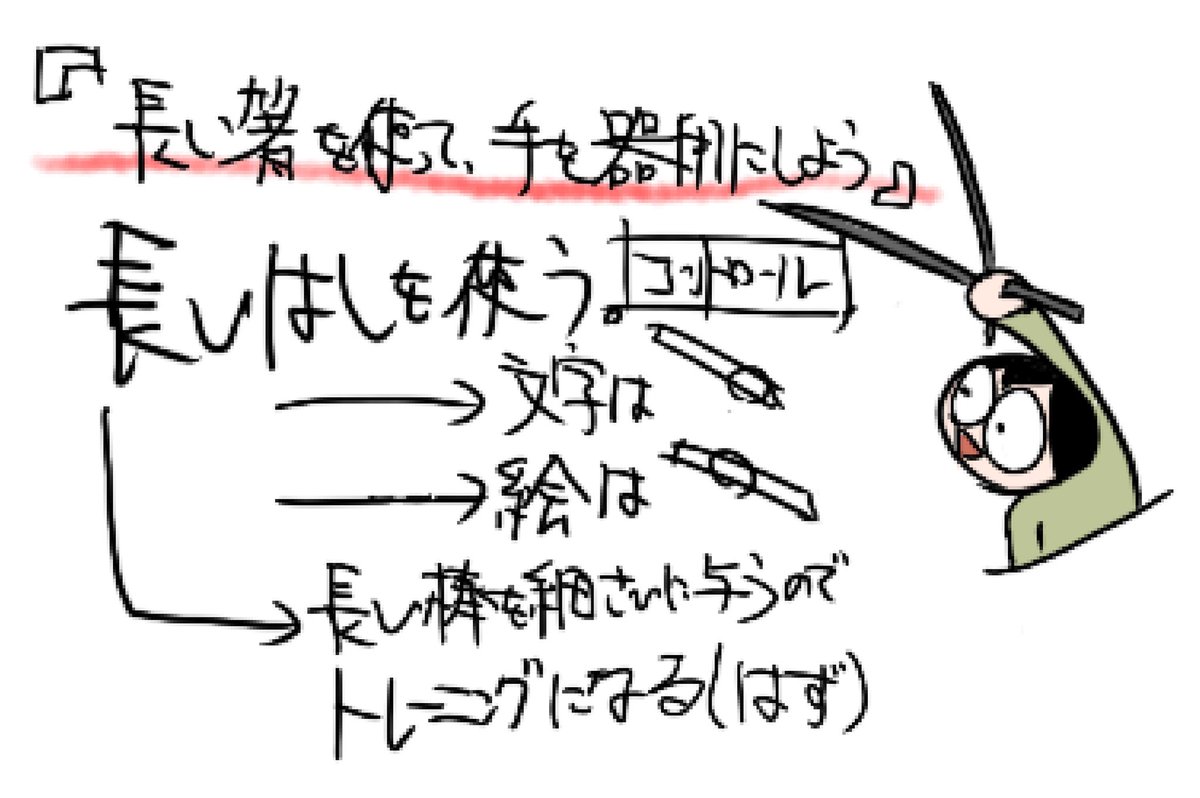 『長い箸を使って、手を器用にしよう』
長いはしを使う。コントロール
→文字は
→絵は
→長い棒を細さいに うので
トレーニングになる(はず)